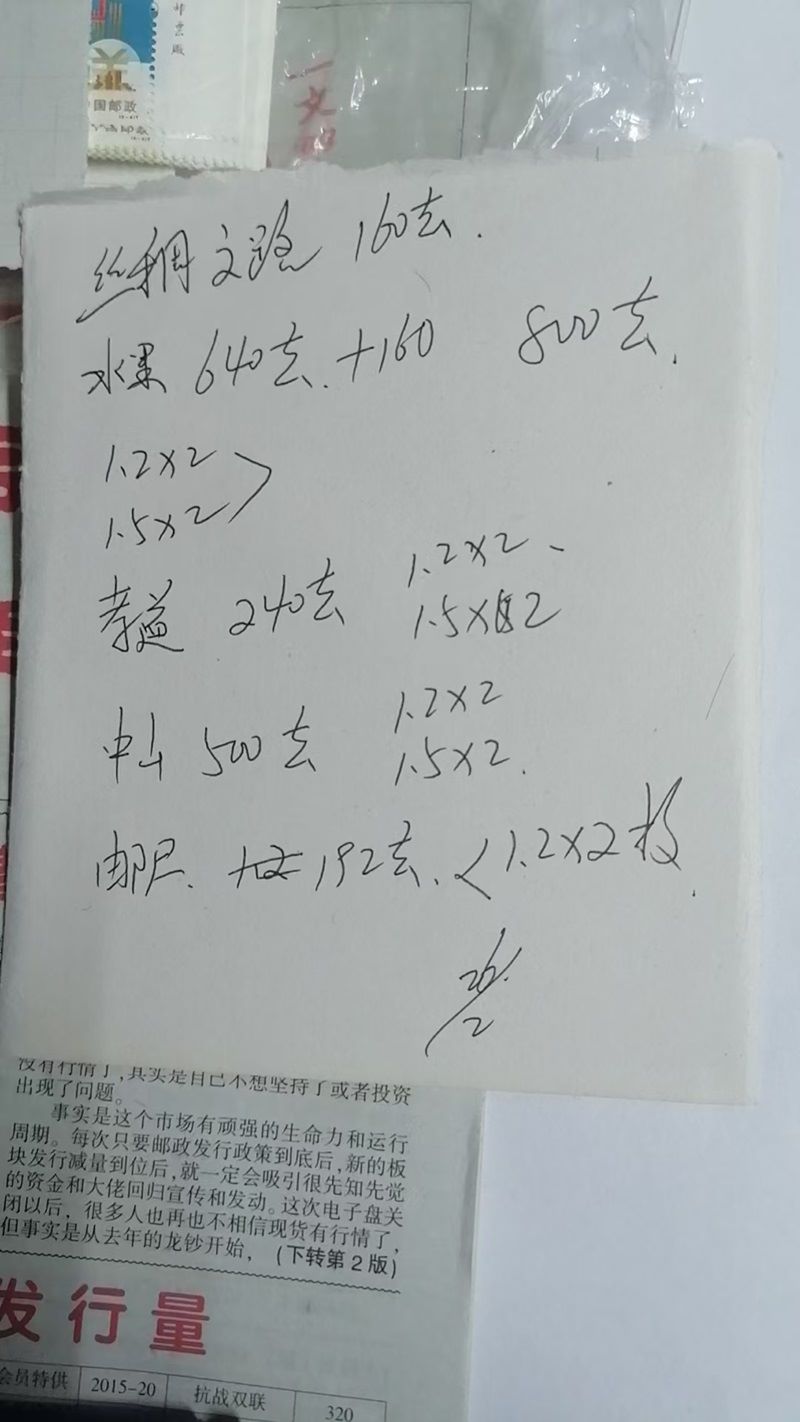 邮票厂
中国邮政
丝绸之路 160套.
水果 640套. +160 800套.
1.2×2
1.5×2
孝益 240套 1.2×2
1.5×2
中山 500套 1.2×2
1.5×2.
192套. <1.2×2枚.
26/2
没有行情了,其实是自己不想坚持了或者投资
出现了问题。
事实是这个市场有顽强的生命力和运行
周期。每次只要邮政发行政策到底后,新的板
块发行减量到位后,就一定会吸引很先知先觉
的资金和大佬回归宣传和发动。这次电子盘关
闭以后，很多人也再也不相信现货有行情了,
但事实是从去年的龙钞开始， (下转第2版)
发行量
会员特供 2015-20 抗战双联 320